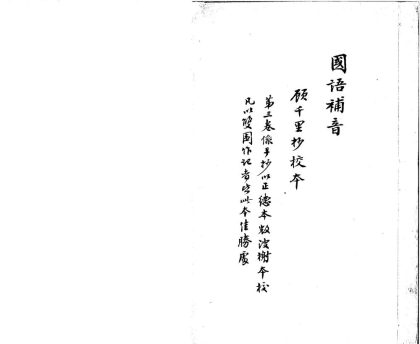 國語補音
顧千里抄校本
第三卷係手抄以正德本數波榭本校
凡以雙圈作記者皆此本佳勝處